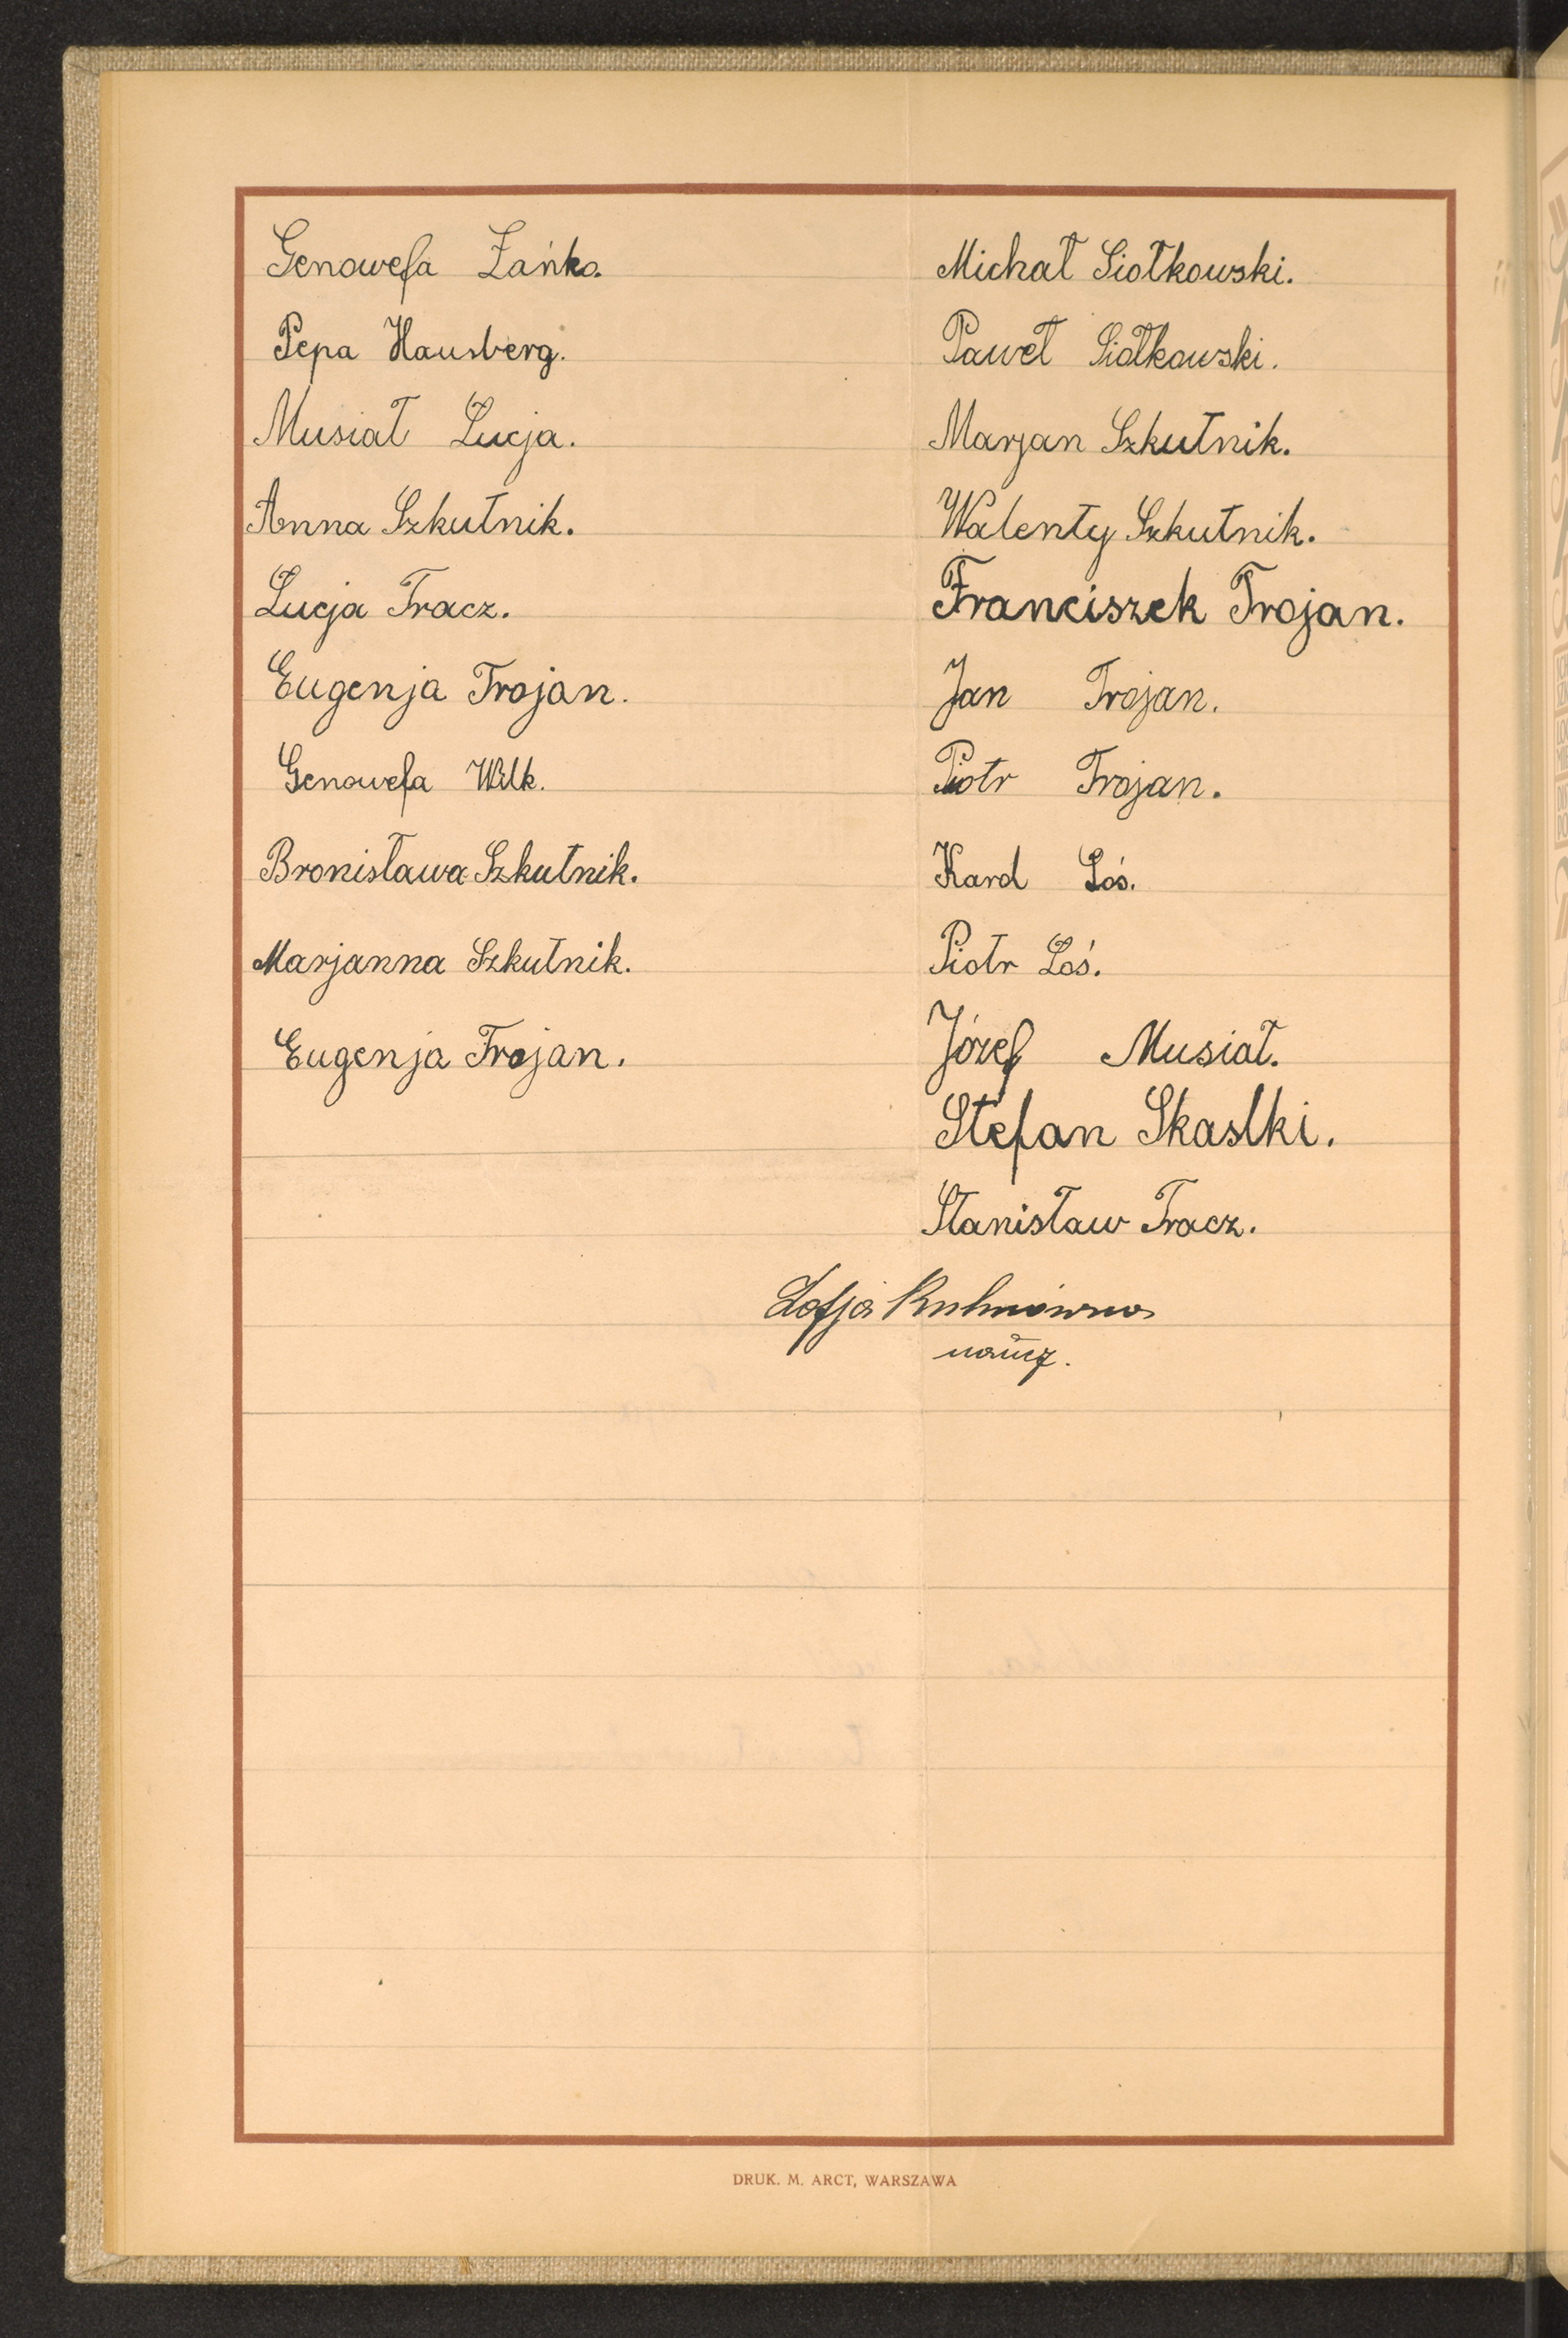 Genowefa Łańko.
Pepa Hausberg.
Musiał Łucja.
Anna Szkutnik.
Łucja Tracz.
Eugenja Trojan.
Genowefa Wilk.
Bronisława Szkutnik.
Marjanna Szkutnik.
Eugenja Trojan.
Michał Siołkowski.
Paweł Siołkowski.
Marjan Szkutnik.
Walenty Szkutnik.
Franciszek Trojan.
Jan Trojan.
Piotr Trojan.
Karol Łoś.
Piotr Łoś.
Józef Musiał.
Stefan Skaslki.
Stanisław Tracz.
Zofja
naucz.
DRUK. M. ARCT, WARSZAWA